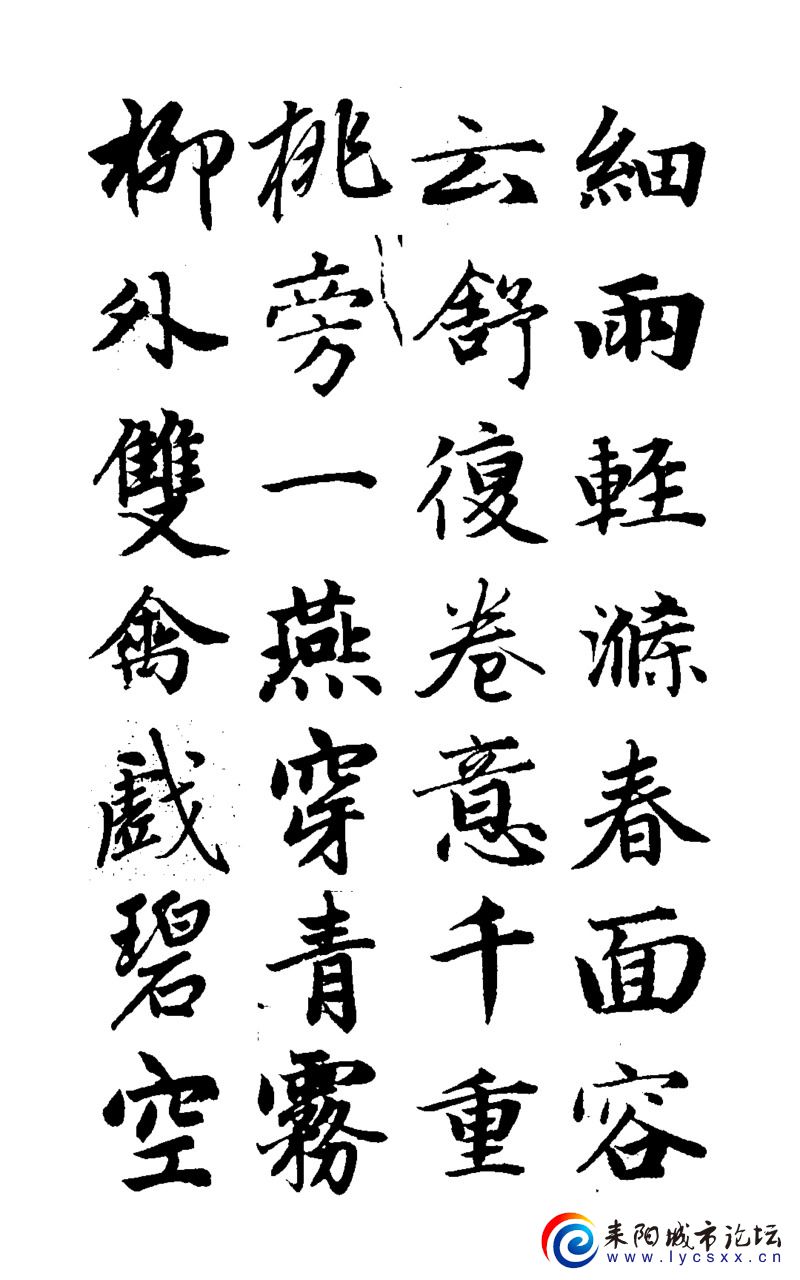 細雨輕滌春面容
云舒復卷意千重
桃旁一燕穿青霧
柳外雙禽戲碧空
耒阳城市论坛
www.lycsxx.cn